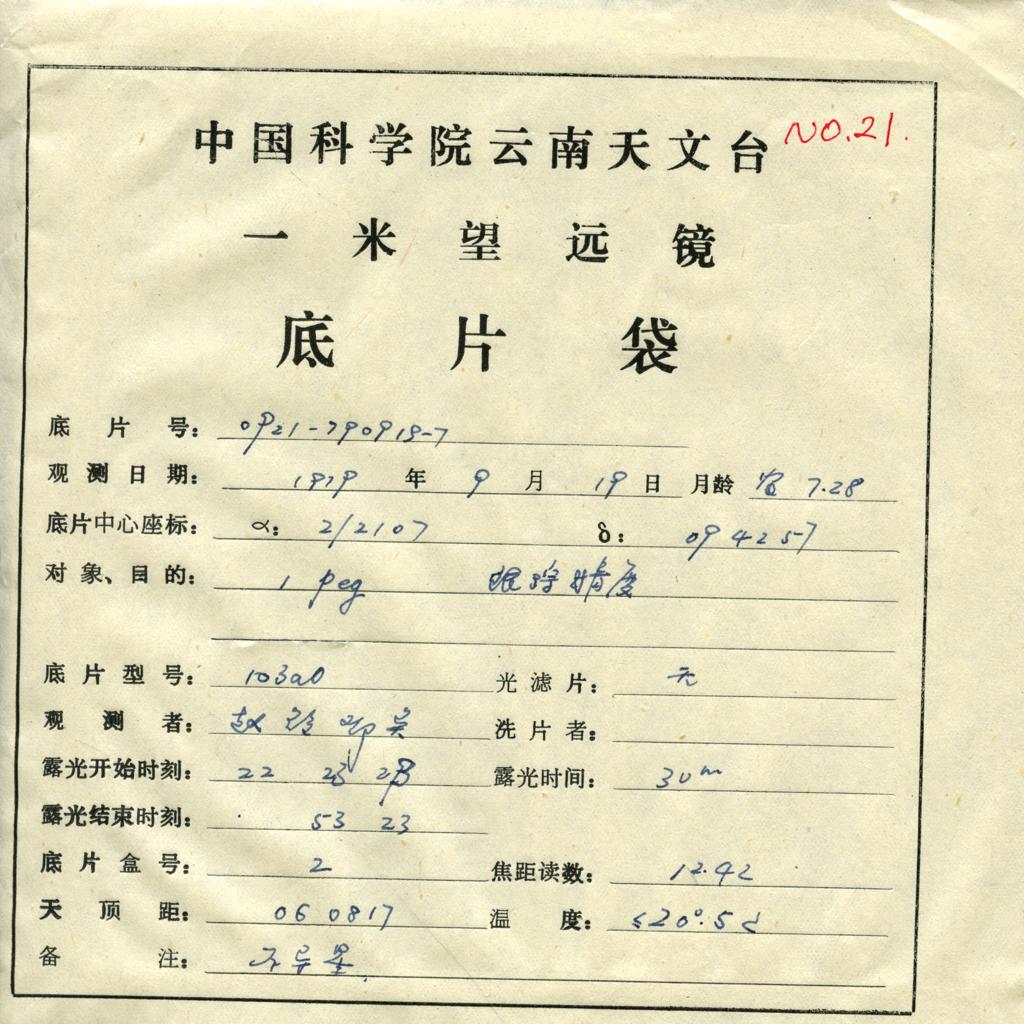 中国科学院云南天文台 NO.21.
一米望远镜
底片袋
底片号: 0921-790919-7
观测日期: 1979 年 9 月 19 日 月龄 7.28
底片中心座标: α: 212107 δ: 094257
对象、目的: 1 peg 跟踪精度
底片型号: 103a0 光滤片: 无
观测者: 赵 吴 洗片者:
露光开始时刻: 22 23 露光时间: 30m
露光结束时刻: 53 23
底片盒号: 2 焦距读数: 12.42
天顶距: 060817 温度: 20°.5
备注: 不导星